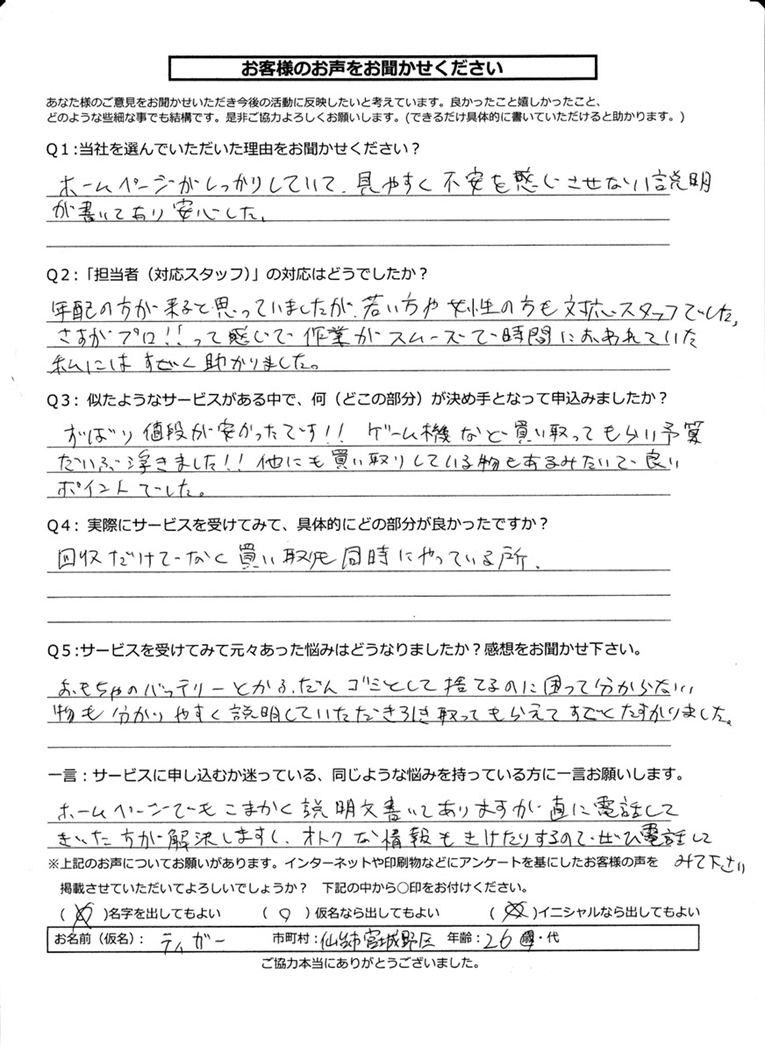 お客様のお声をお聞かせください
あなた様のご意見をお聞かせいただき今後の活動に反映したいと考えています。良かったこと嬉しかったこと、
どのような些細な事でも結構です。是非ご協力よろしくお願いします。(できるだけ具体的に書いていただけると助かります。)
Q1:当社を選んでいただいた理由をお聞かせください？
ホームページがしっかりしていて、見やすく不安を感じさせない説明
が書いてあり安心した。
Q2:「担当者（対応スタッフ）」の対応はどうでしたか？
年配の方が来ると思っていましたが、若い方や女性の方も対応スタッフでした。
さすがプロ！！って感じで作業がスムーズで時間におわれていた
私にはすごく助かりました。
Q3: 似たようなサービスがある中で、何（どこの部分）が決め手となって申込みましたか？
ずばり値段が安かったです！！ ゲーム機など買い取ってもらい予算
だいぶ浮きました！！他にも買い取りしている物もあるみたいで良い
ポイントでした。
Q4: 実際にサービスを受けてみて、具体的にどの部分が良かったですか？
回収だけでなく買い取りも同時にやっている所、
Q5:サービスを受けてみて元々あった悩みはどうなりましたか？感想をお聞かせ下さい。
おもちゃのバッテリーとかふだんゴミとして捨てるのに困って分からない
物も分かりやすく説明していただき引き取ってもらえてすごくたすかりました。
一言:サービスに申し込むか迷っている、同じような悩みを持っている方に一言お願いします。
ホームページでもこまかく説明文書いてありますが直に電話して
きいた方が解決しますし、オトクな情報もきけたりするので、ぜひ電話して
みて下さい
※上記のお声についてお願いがあります。インターネットや印刷物などにアンケートを基にしたお客様の声を
掲載させていただいてよろしいでしょうか？ 下記の中から○印をお付けください。
( )名字を出してもよい ( ○ )仮名なら出してもよい ( )イニシャルなら出してもよい
お名前（仮名）: ティガー 市町村:仙台市宮城野区 年齢:26 歳・代
ご協力本当にありがとうございました。